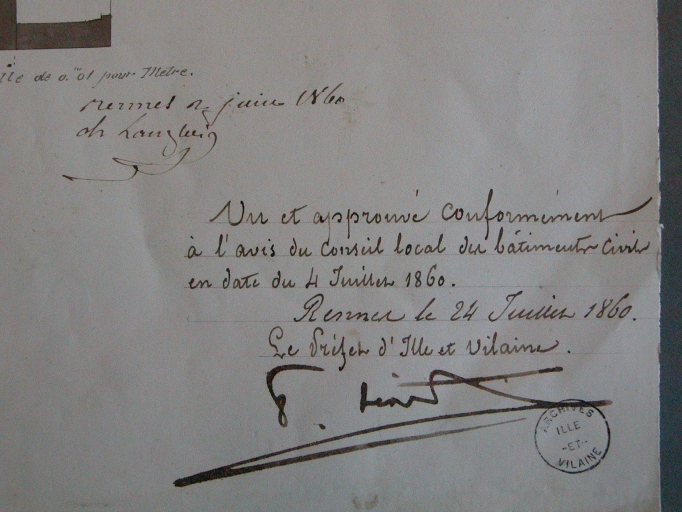 lle de 0.m 01 pour Mètre.
Rennes 2 juin 1860
ch Langlois
Vu et approuvé conformément
à l'avis du Conseil local des bâtiments Civils
en date du 4 Juillet 1860.
Rennes le 24 Juillet 1860.
Le Préfet d'Ille et Vilaine.
ARCHIVES
ILLE
-ET-
VILAINE